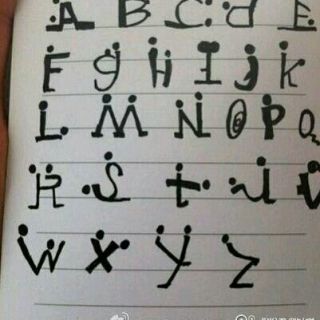 A B C d E
F g H I J K
L M N O P Q
R S t U V
W X Y Z